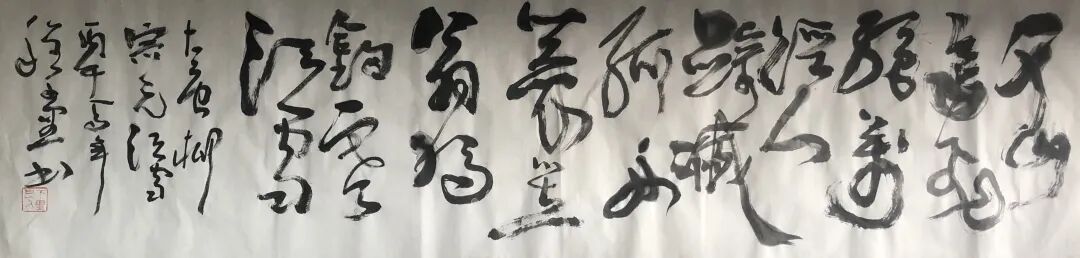 千山
鳥飛
絕萬
徑人
蹤滅
孤舟
蓑笠
翁獨
釣寒
江雪
柳
宗元江雪
午
书